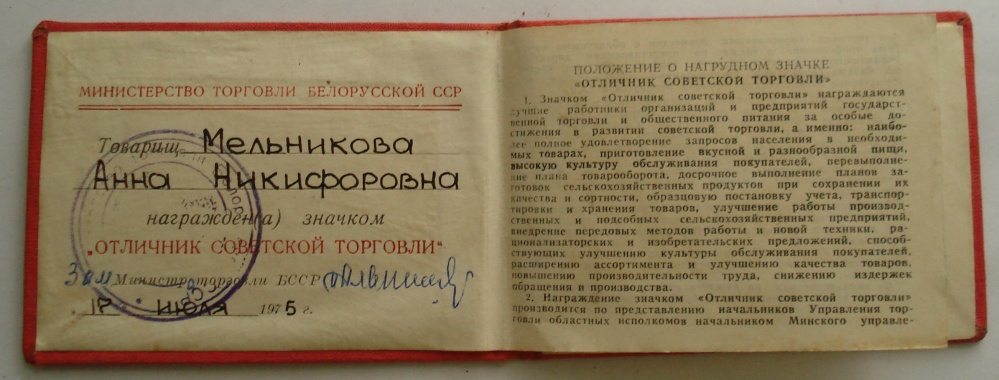 МИНИСТЕРСТВО ТОРГОВЛИ БЕЛОРУССКОЙ ССР
Товарищ Мельникова
Анна Никифоровна
награжден(а) значком
„ОТЛИЧНИК СОВЕТСКОЙ ТОРГОВЛИ“
Зам Министр торговли БССР
" " ИЮЛЯ 1975 г.
ПОЛОЖЕНИЕ О НАГРУДНОМ ЗНАЧКЕ
«ОТЛИЧНИК СОВЕТСКОЙ ТОРГОВЛИ»
1. Значком «Отличник советской торговли» награждаются
лучшие работники организаций и предприятий государст-
венной торговли и общественного питания за особые до-
стижения в развитии советской торговли, а именно: наибо-
лее полное удовлетворение запросов населения в необходи-
мых товарах, приготовление вкусной и разнообразной пищи,
высокую культуру обслуживания покупателей, перевыполне-
ние плана товарооборота, досрочное выполнение планов за-
готовок сельскохозяйственных продуктов при сохранении их
качества и сортности, образцовую постановку учета, транспор-
тировки и хранения товаров, улучшение работы производ-
ственных и подсобных сельскохозяйственных предприятий,
внедрение передовых методов работы и новой техники, ра-
ционализаторских и изобретательских предложений, способ-
ствующих улучшению культуры обслуживания покупателей,
расширению ассортимента и улучшению качества товаров,
повышению производительности труда, снижению издержек
обращения и производства.
2. Награждение значком «Отличник советской торговли»
производится по представлению начальников Управления тор-
говли областных исполкомов начальником Минского управле-